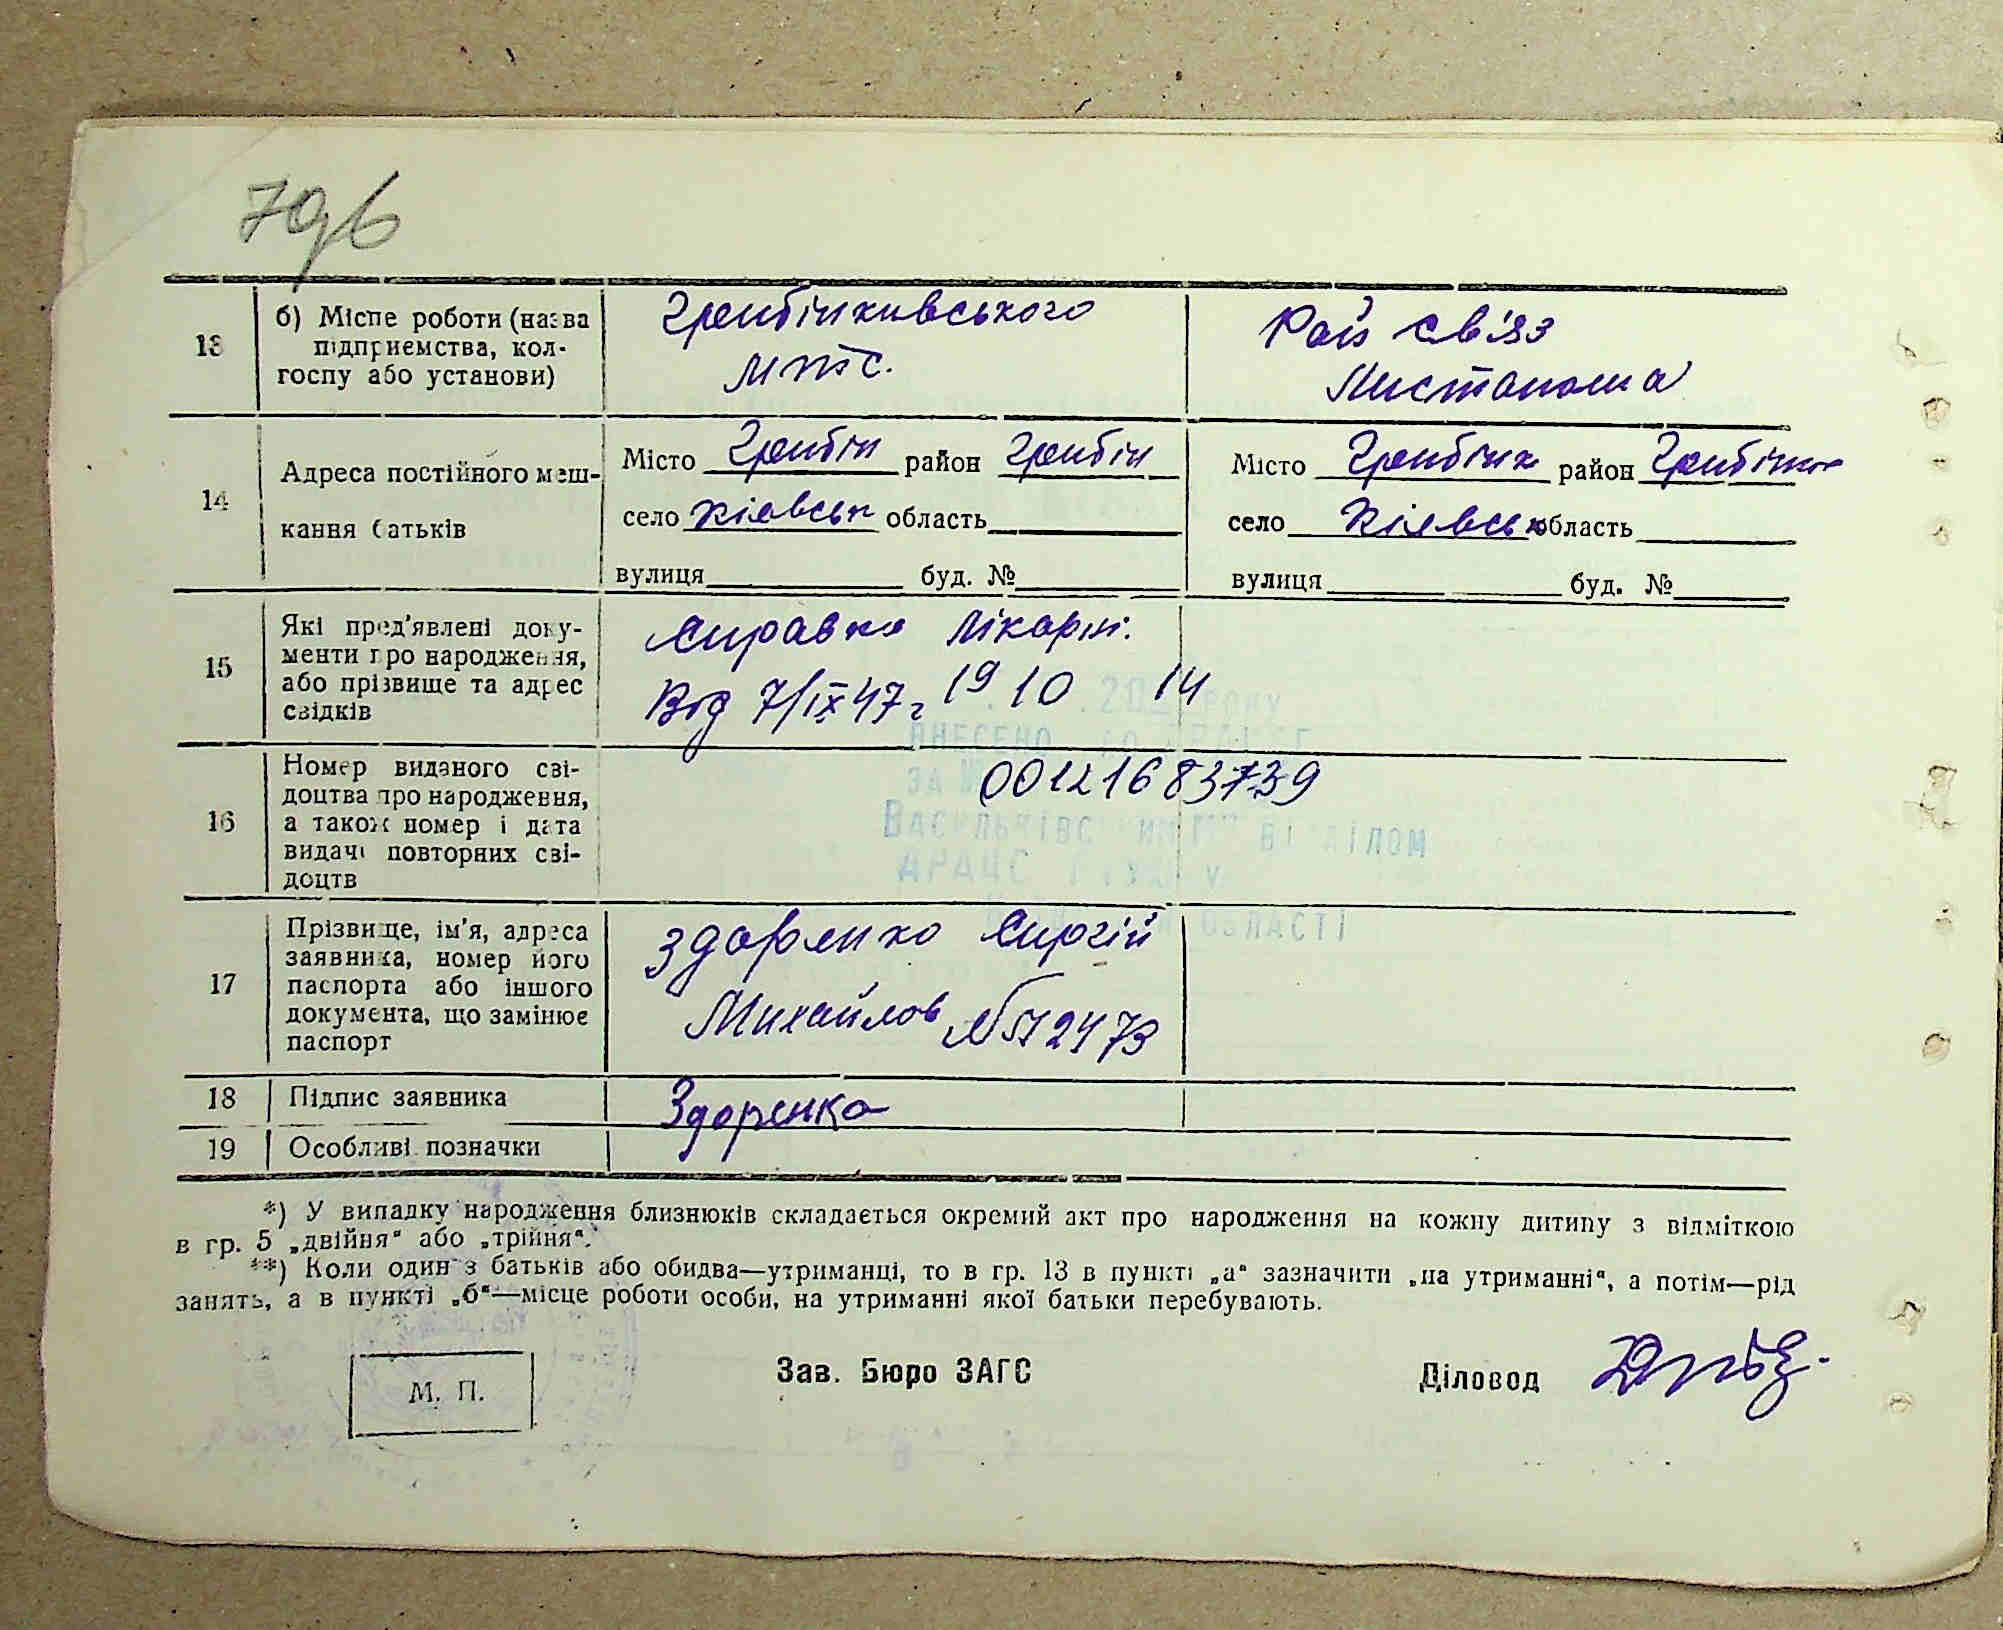 79б
13
б) Місце роботи (назва
підприємства, кол-
госпу або установи)
Гребінківського
МТС.
Рай свіяз
Листаноша
14
Адреса постійного меш-
кання батьків
Місто Гребін район Гребін
село Кієвськ область
вулиця буд. №
Місто Гребінк район Гребінк
село Кієвськ область
вулиця буд. №
15
Які пред'явлені доку-
менти про народження,
або прізвище та адрес
свідків
Справка лікарні.
Від 7/IX 47 г
19 10 14
. . 20 РОКУ
ВНЕСЕНО ДО ДРАЦСГ
ЗА № 00121683739
ВАСИЛЬКІВСЬКИМ ВІДДІЛОМ
ДРАЦС У
ОБЛАСТІ
16
Номер виданого сві-
доцтва про народження,
а також номер і дата
видачі повторних сві-
доцтв
17
Прізвище, ім'я, адреса
заявника, номер його
паспорта або іншого
документа, що замінює
паспорт
Здоренко Сиргій
Михайлов № 512473
18
Підпис заявника
Здоренко
19
Особливі позначки
*) У випадку народження близнюків складається окремий акт про народження на кожну дитину з відміткою
в гр. 5 „двійня“ або „трійня“.
**) Коли один з батьків або обидва—утриманці, то в гр. 13 в пункті „а“ зазначити „на утриманні“, а потім—рід
занять, а в пункті „б“—місце роботи особи, на утриманні якої батьки перебувають.
М. П.
Зав. Бюро ЗАГС
Діловод